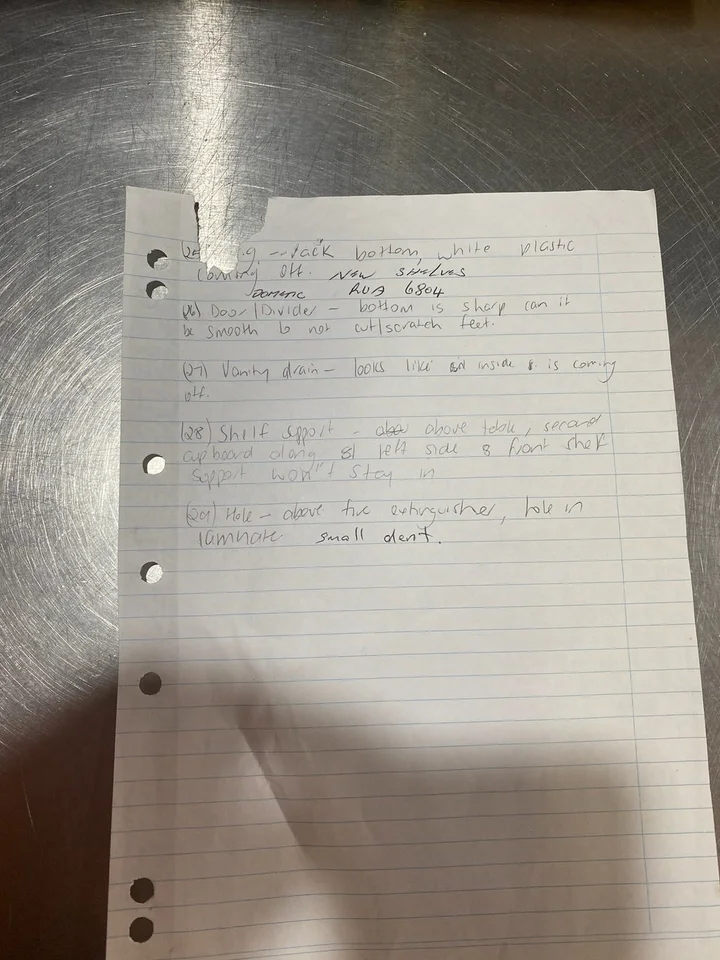 rack bottom, white plastic
coming off. NEW SHELVES
DOMETIC RUA 6804
(26) Door/Divider - bottom is sharp can it
be smooth to not cut/scratch feet.
(27) Vanity drain - looks like inside is coming
off.
(28) Shelf support - above table, second
cupboard along left side & front shelf
support won't stay in
(29) Hole - above fire extinguisher, hole in
laminate small dent.